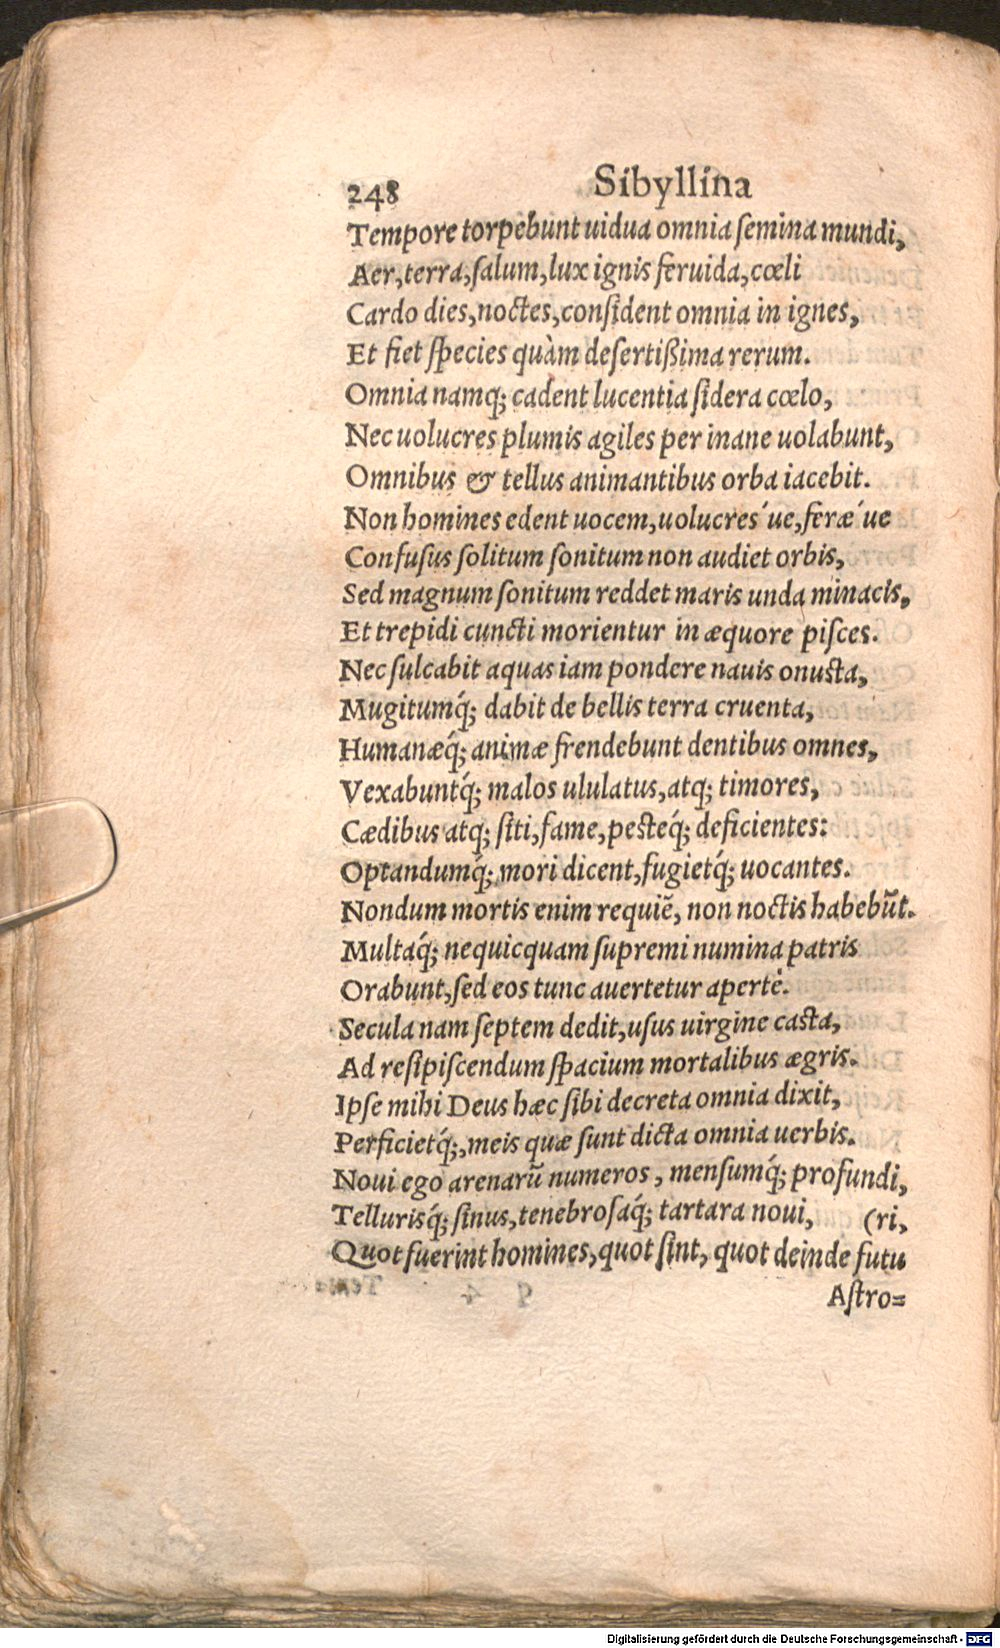 248 Sibyllina
Tempore torpebunt uidua omnia ſemina mundi,
Aer, terra, ſalum, lux ignis feruida, cœli
Cardo dies, noctes, conſident omnia in ignes,
Et fiet ſpecies quàm deſertißima rerum.
Omnia namq; cadent lucentia ſidera cœlo,
Nec uolucres plumis agiles per inane uolabunt,
Omnibus & tellus animantibus orba iacebit.
Non homines edent uocem, uolucres´ue, feræ´ue
Confuſus ſolitum ſonitum non audiet orbis,
Sed magnum ſonitum reddet maris unda minacis,
Et trepidi cuncti morientur in æquore piſces.
Nec ſulcabit aquas iam pondere nauis onusta,
Mugitumq́; dabit de bellis terra cruenta,
Humanæq́; animæ frendebunt dentibus omnes,
Vexabuntq́; malos ululatus, atq; timores,
Cædibus atq; ſiti, fame, pesteq́; deficientes:
Optandumq́; mori dicent, fugietq́; uocantes.
Nondum mortis enim requiẽ, non noctis habebũt.
Multaq́; nequicquam ſupremi numina patris
Orabunt, ſed eos tunc auertetur apertè.
Secula nam ſeptem dedit, uſus uirgine casta,
Ad reſipiſcendum ſpacium mortalibus ægris.
Ipſe mihi Deus hæc ſibi decreta omnia dixit,
Perficietq́;, meis quæ ſunt dicta omnia uerbis.
Noui ego arenarũ numeros, menſumq́; profundi,
Tellurisq́; ſinus, tenebroſaq́; tartara noui, (ri,
Quot fuerint homines, quot ſint, quot deinde futu
Aſtro=
Digitalisierung gefördert durch die Deutsche Forschungsgemeinschaft - DFG